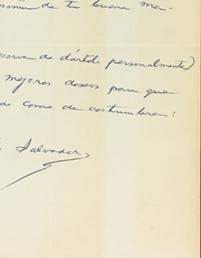 de tu buena ma-
reserva de dártelo personalmente)
mejores deseos para que
como de costumbre:
Salvador